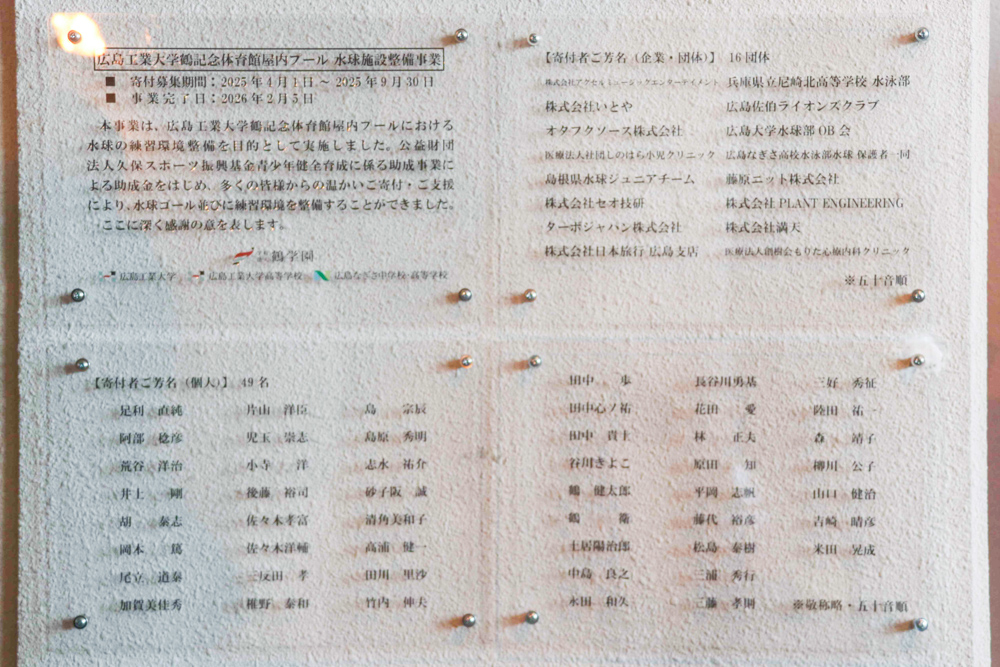 広島工業大学鶴記念体育館屋内プール 水球施設整備事業
■ 寄付募集期間：2025年4月1日～2025年9月30日
■ 事業完了日：2026年2月5日
本事業は、広島工業大学鶴記念体育館屋内プールにおける
水球の練習環境整備を目的として実施しました。公益財団
法人久保スポーツ振興基金青少年健全育成に係る助成事業に
よる助成金をはじめ、多くの皆様からの温かいご寄付・ご支援
により、水球ゴール並びに練習環境を整備することができました。
ここに深く感謝の意を表します。
鶴学園
広島工業大学 広島工業大学高等学校 広島なぎさ中学校・高等学校
【寄付者ご芳名（企業・団体）】 16団体
株式会社アクセルミュージックエンターテイメント 兵庫県立尼崎北高等学校 水泳部
株式会社いとや 広島佐伯ライオンズクラブ
オタフクソース株式会社 広島大学水球部OB会
医療法人社団しのはら小児クリニック 広島なぎさ高校水泳部水球 保護者一同
島根県水球ジュニアチーム 藤原ニット株式会社
株式会社セオ技研 株式会社 PLANT ENGINEERING
ターボジャパン株式会社 株式会社満天
株式会社日本旅行 広島支店 医療法人創樹会もりた心療内科クリニック
※五十音順
【寄付者ご芳名（個人）】 49名
足利 直純 片山 洋臣 島 宗辰
阿部 稔彦 児玉 崇志 島原 秀明
荒谷 洋治 小寺 洋 志水 祐介
井上 剛 後藤 裕司 砂子阪 誠
胡 泰志 佐々木孝富 清角美和子
岡本 篤 佐々木洋輔 高浦 健一
尾立 道泰 三反田 孝 田川 里沙
加賀美佳秀 椎野 泰和 竹内 伸夫
田中 歩 長谷川勇基 三好 秀征
田中心ノ祐 花田 愛 陸田 祐一
田中 貴士 林 正夫 森 靖子
谷川きよこ 原田 知 柳川 公子
鶴 健太郎 平岡 志帆 山口 健治
鶴 衛 藤代 裕彦 吉崎 晴彦
土居陽治郎 松島 泰樹 来田 晃成
中島 良之 三浦 秀行
永田 和久 三藤 孝則 ※敬称略・五十音順